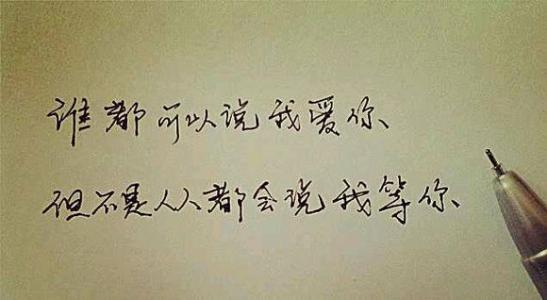 谁都可以说我爱你、
但不是人人都会说我等你、